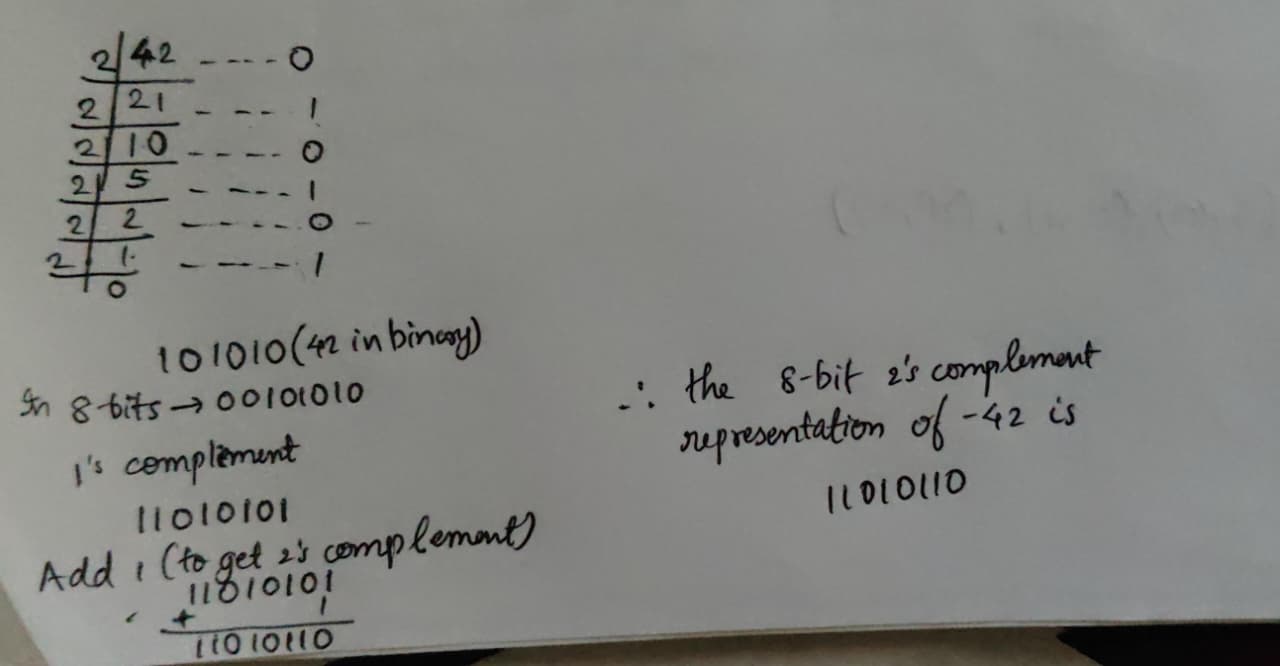 2 42 ---- 0
2 21 - --- 1
2 10 ----- 0
2 5 - ---- 1
2 2 ----- 0 -
2 1. ----- 1
0
101010 (42 in binary)
In 8-bits → 00101010
1's complement
11010101
Add 1 (to get 2's complement)
11010101
+ 1
11010110
∴ the 8-bit 2's complement
representation of -42 is
11010110